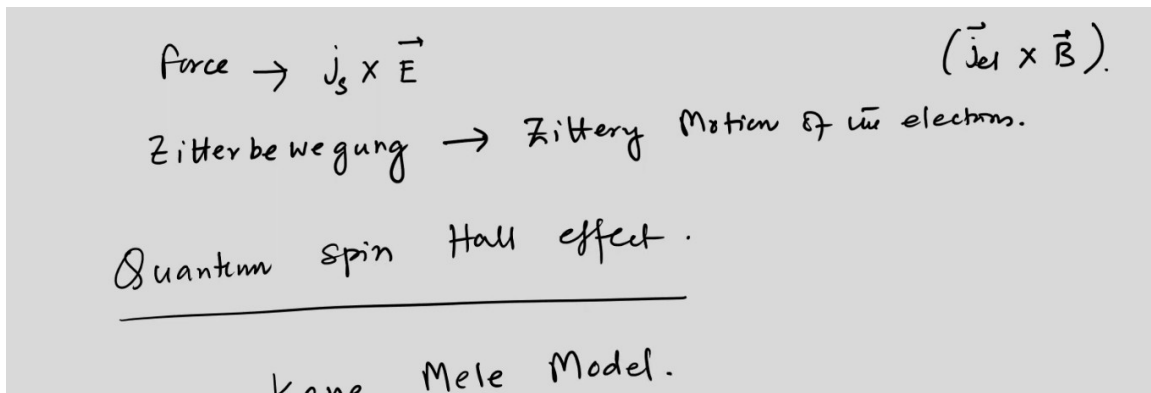 force → j_s × E⃗ (j⃗_el × B⃗).
Zitterbewegung → Zittery Motion of the electrons.
Quantum spin Hall effect.
Kane Mele Model.